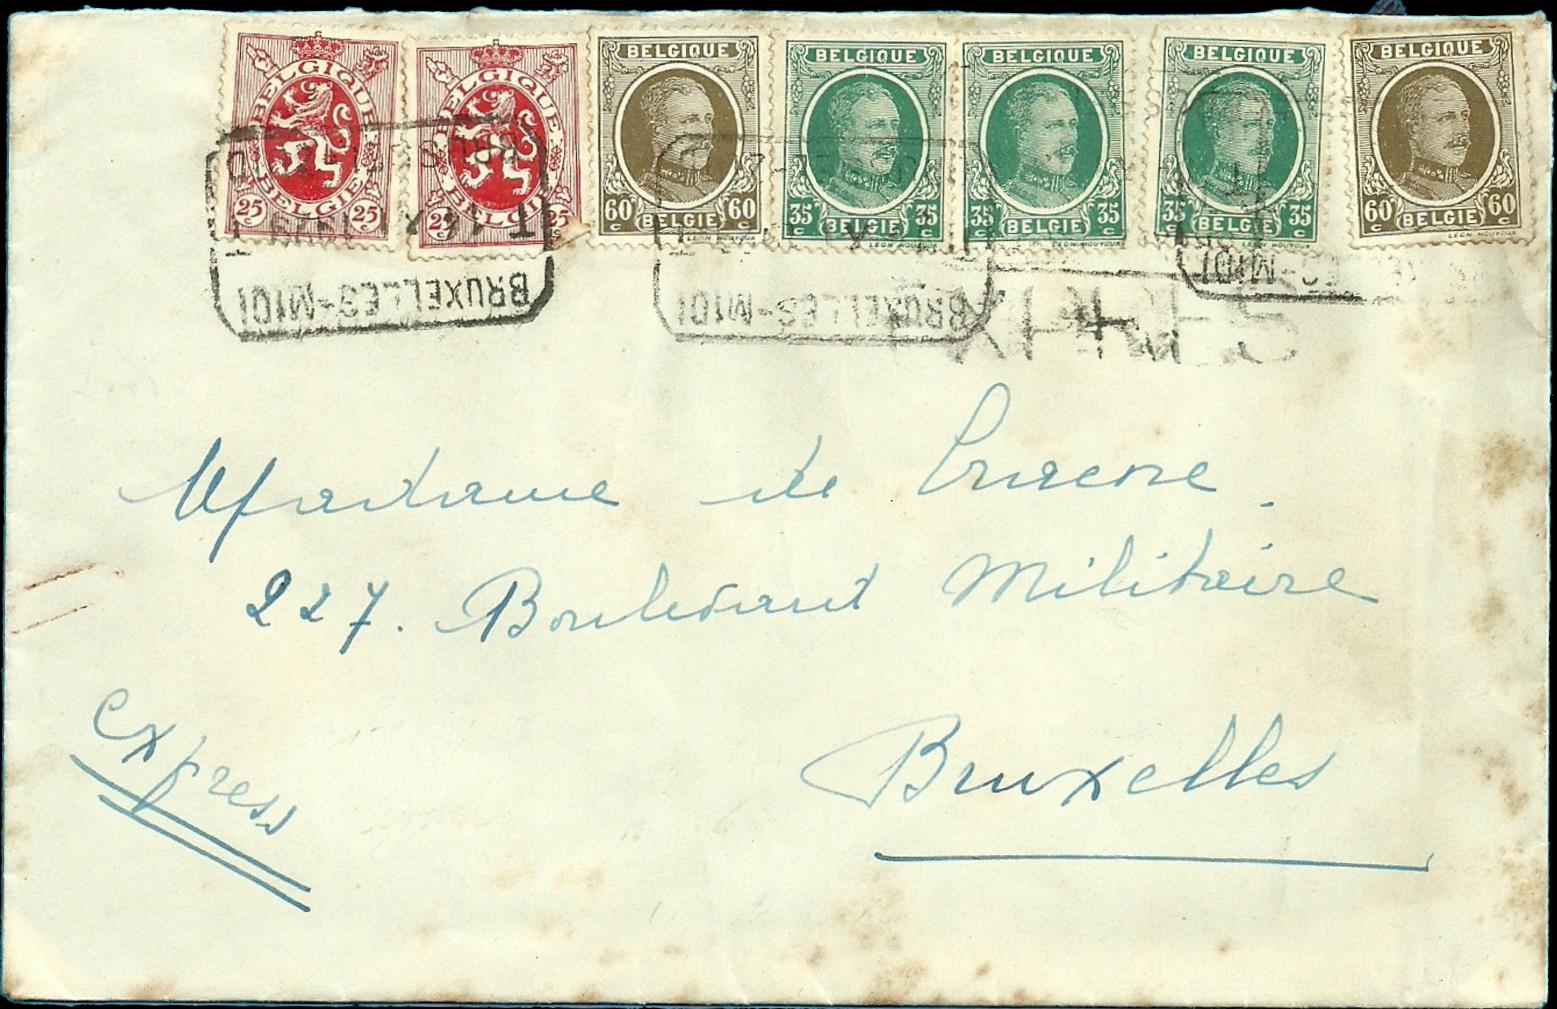 BELGIQUE BELGIQUE BELGIQUE BELGIQUE BELGIQUE BELGIQUE BELGIQUE
25 25 25 60 60 35 35 35 35 35 35 60 60
BELGIE BELGIE BELGIE BELGIE BELGIE BELGIE
BRUXELLES-MIDI BRUXELLES-MIDI
Madame de
227. Boulevard Militaire
Bruxelles
express